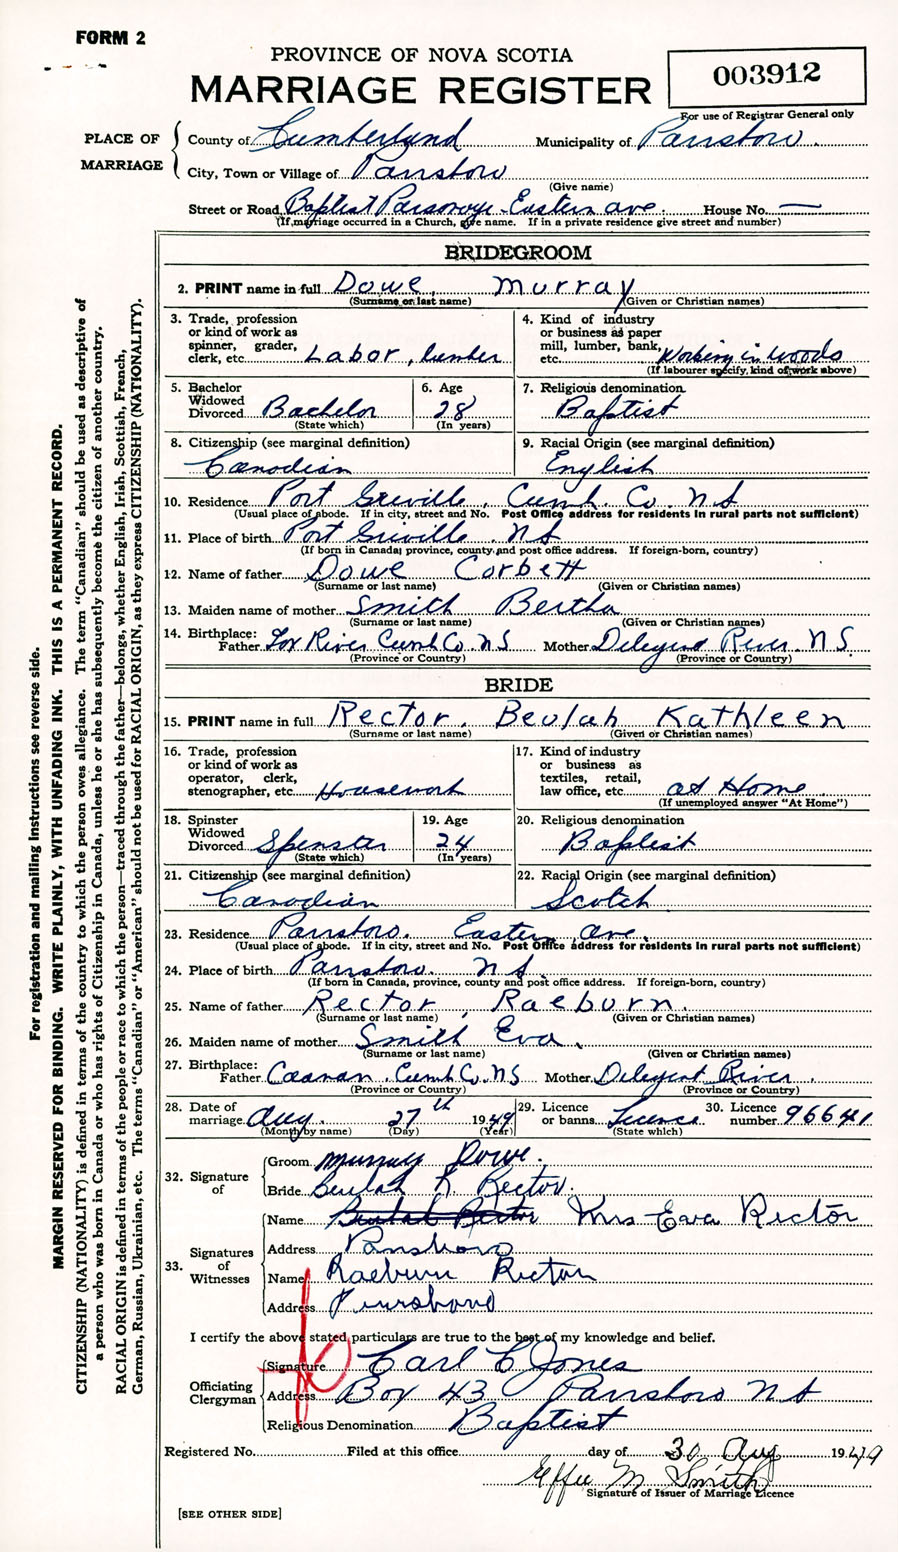 FORM 2
PROVINCE OF NOVA SCOTIA
MARRIAGE REGISTER
003912
For use of Registrar General only
PLACE OF MARRIAGE
County of Cumberland Municipality of Parrsboro
City, Town or Village of Parrsboro
(Give name)
Street or Road Baptist Parsonage Eastern ave. House No. —
(If marriage occurred in a Church, give name. If in a private residence give street and number)
BRIDEGROOM
2. PRINT name in full Dowe, Murray
(Surname or last name) (Given or Christian names)
3. Trade, profession or kind of work as spinner, grader, clerk, etc. Labor, lumber
4. Kind of industry or business as paper mill, lumber, bank, etc. Working in Woods
(If labourer specify, kind of work above)
5. Bachelor Widowed Divorced Bachelor
(State which)
6. Age 28
(In years)
7. Religious denomination Baptist
8. Citizenship (see marginal definition)
Canadian
9. Racial Origin (see marginal definition)
English
10. Residence Port Greville, Cumb. Co. N S
(Usual place of abode. If in city, street and No. Post Office address for residents in rural parts not sufficient)
11. Place of birth Port Greville N S
(If born in Canada, province, county and post office address. If foreign-born, country)
12. Name of father Dowe Corbett
(Surname or last name) (Given or Christian names)
13. Maiden name of mother Smith Bertha
(Surname or last name) (Given or Christian names)
14. Birthplace: Father Fox River Cumb Co. N S Mother Deligent River. N. S.
(Province or Country) (Province or Country)
BRIDE
15. PRINT name in full Rector, Beulah Kathleen
(Surname or last name) (Given or Christian names)
16. Trade, profession or kind of work as operator, clerk, stenographer, etc. Housework
17. Kind of industry or business as textiles, retail, law office, etc. at Home
(If unemployed answer "At Home")
18. Spinster Widowed Divorced Spinster
(State which)
19. Age 24
(In years)
20. Religious denomination
Baptist
21. Citizenship (see marginal definition)
Canadian
22. Racial Origin (see marginal definition)
Scotch
23. Residence Parrsboro. Eastern ave.
(Usual place of abode. If in city, street and No. Post Office address for residents in rural parts not sufficient)
24. Place of birth Parrsboro. N S.
(If born in Canada, province, county and post office address. If foreign-born, country)
25. Name of father Rector, Raeburn.
(Surname or last name) (Given or Christian names)
26. Maiden name of mother Smith Eva.
(Surname or last name) (Given or Christian names)
27. Birthplace: Father Caanan Cumb Co. N S Mother Deligent River.
(Province or Country) (Province or Country)
28. Date of marriage Aug. 27th 1949
(Month by name) (Day) (Year)
29. Licence or banns Licence
(State which)
30. Licence number 96641
32. Signature of
Groom Murray Dowe.
Bride Beulah K. Rector.
33. Signatures of Witnesses
Name Beulah Rector Mrs Eva Rector
Address Parrsboro
Name Raeburn Rector
Address Parrsboro
I certify the above stated particulars are true to the best of my knowledge and belief.
Officiating Clergyman
Signature Carl C Jones
Address Box 43 Parrsboro N S
Religious Denomination Baptist
Registered No. Filed at this office day of 30 Aug 1949
Effie M Smith
Signature of Issuer of Marriage Licence
[SEE OTHER SIDE]
For registration and mailing instructions see reverse side.
MARGIN RESERVED FOR BINDING. WRITE PLAINLY, WITH UNFADING INK. THIS IS A PERMANENT RECORD.
CITIZENSHIP (NATIONALITY) is defined in terms of the country to which the person owes allegiance. The term "Canadian" should be used as descriptive of
a person who was born in Canada or who has rights of Citizenship in Canada, unless he or she has subsequently become the citizen of another country.
RACIAL ORIGIN is defined in terms of the people or race to which the person—traced through the father—belongs, whether English, Irish, Scottish, French,
German, Russian, Ukrainian, etc. The terms "Canadian" or "American" should not be used for RACIAL ORIGIN, as they express CITIZENSHIP (NATIONALITY).